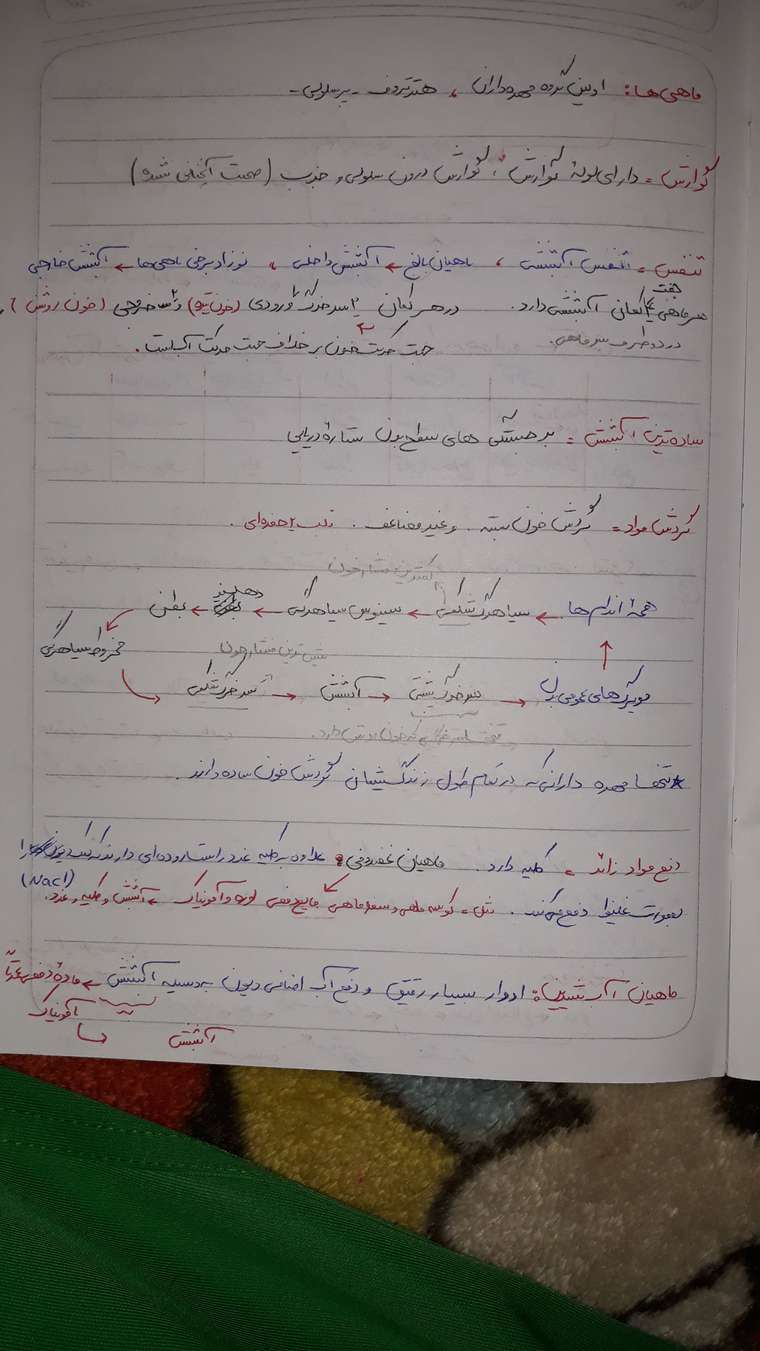 ماهی ها: اولین گروه مهره داران ، هتروتروف - پرسلولی -
گوارش = دارای لولهٔ گوارش ، گوارش درون سلولی و جذب ( صحبت آنچنانی نشده )
تنفس = تنفس آبششی ، ماهیان بالغ ← آبشش داخلی ، نوزاد برخی ماهی ها ← آبشش خارجی
هر ماهی ۴ جفت کمان آبششی دارد. در هر کمان ۲ سرخرگ ورودی (خون تیره) و خروجی ( خون روشن )
در دو طرف سر ماهی.
جهت حرکت خون بر خلاف جهت حرکت آب است.
ساده ترین آبشش = برجستگی های سطح بدن ستارهٔ دریایی
گردش مواد = گردش خون بسته و غیر مضاعف . قلب ۲ حفره ای .
کمترین فشار خون
همهٔ اندام ها ← سیاهرگ شکمی ← سینوس سیاهرگی ← دهلیز ← بطن
مخروط سیاهرگی
بیش ترین فشار خون
مویرگ های عمومی بدن ← سرخرگ پشتی ← آبشش ← سرخرگ شکمی
* تنها مهره دارانی که در تمام طول زندگیشان گردش خون ساده دارند.
دفع مواد زائد = کلیه دارد. ماهیان غضروفی: علاوه بر کلیه غدد راست روده ای دارند که
بصورت غلیظ دفع می کند . مثل = کوسه ماهی و سفره ماهی آبشش و کلیه و غدد. (NaCl)
ماهیان آب شیرین: ادرار بسیار رقیق و دفع آب اضافی بدون به وسیله آبشش ← مادهٔ دفعی
آمونیاک
آبشش